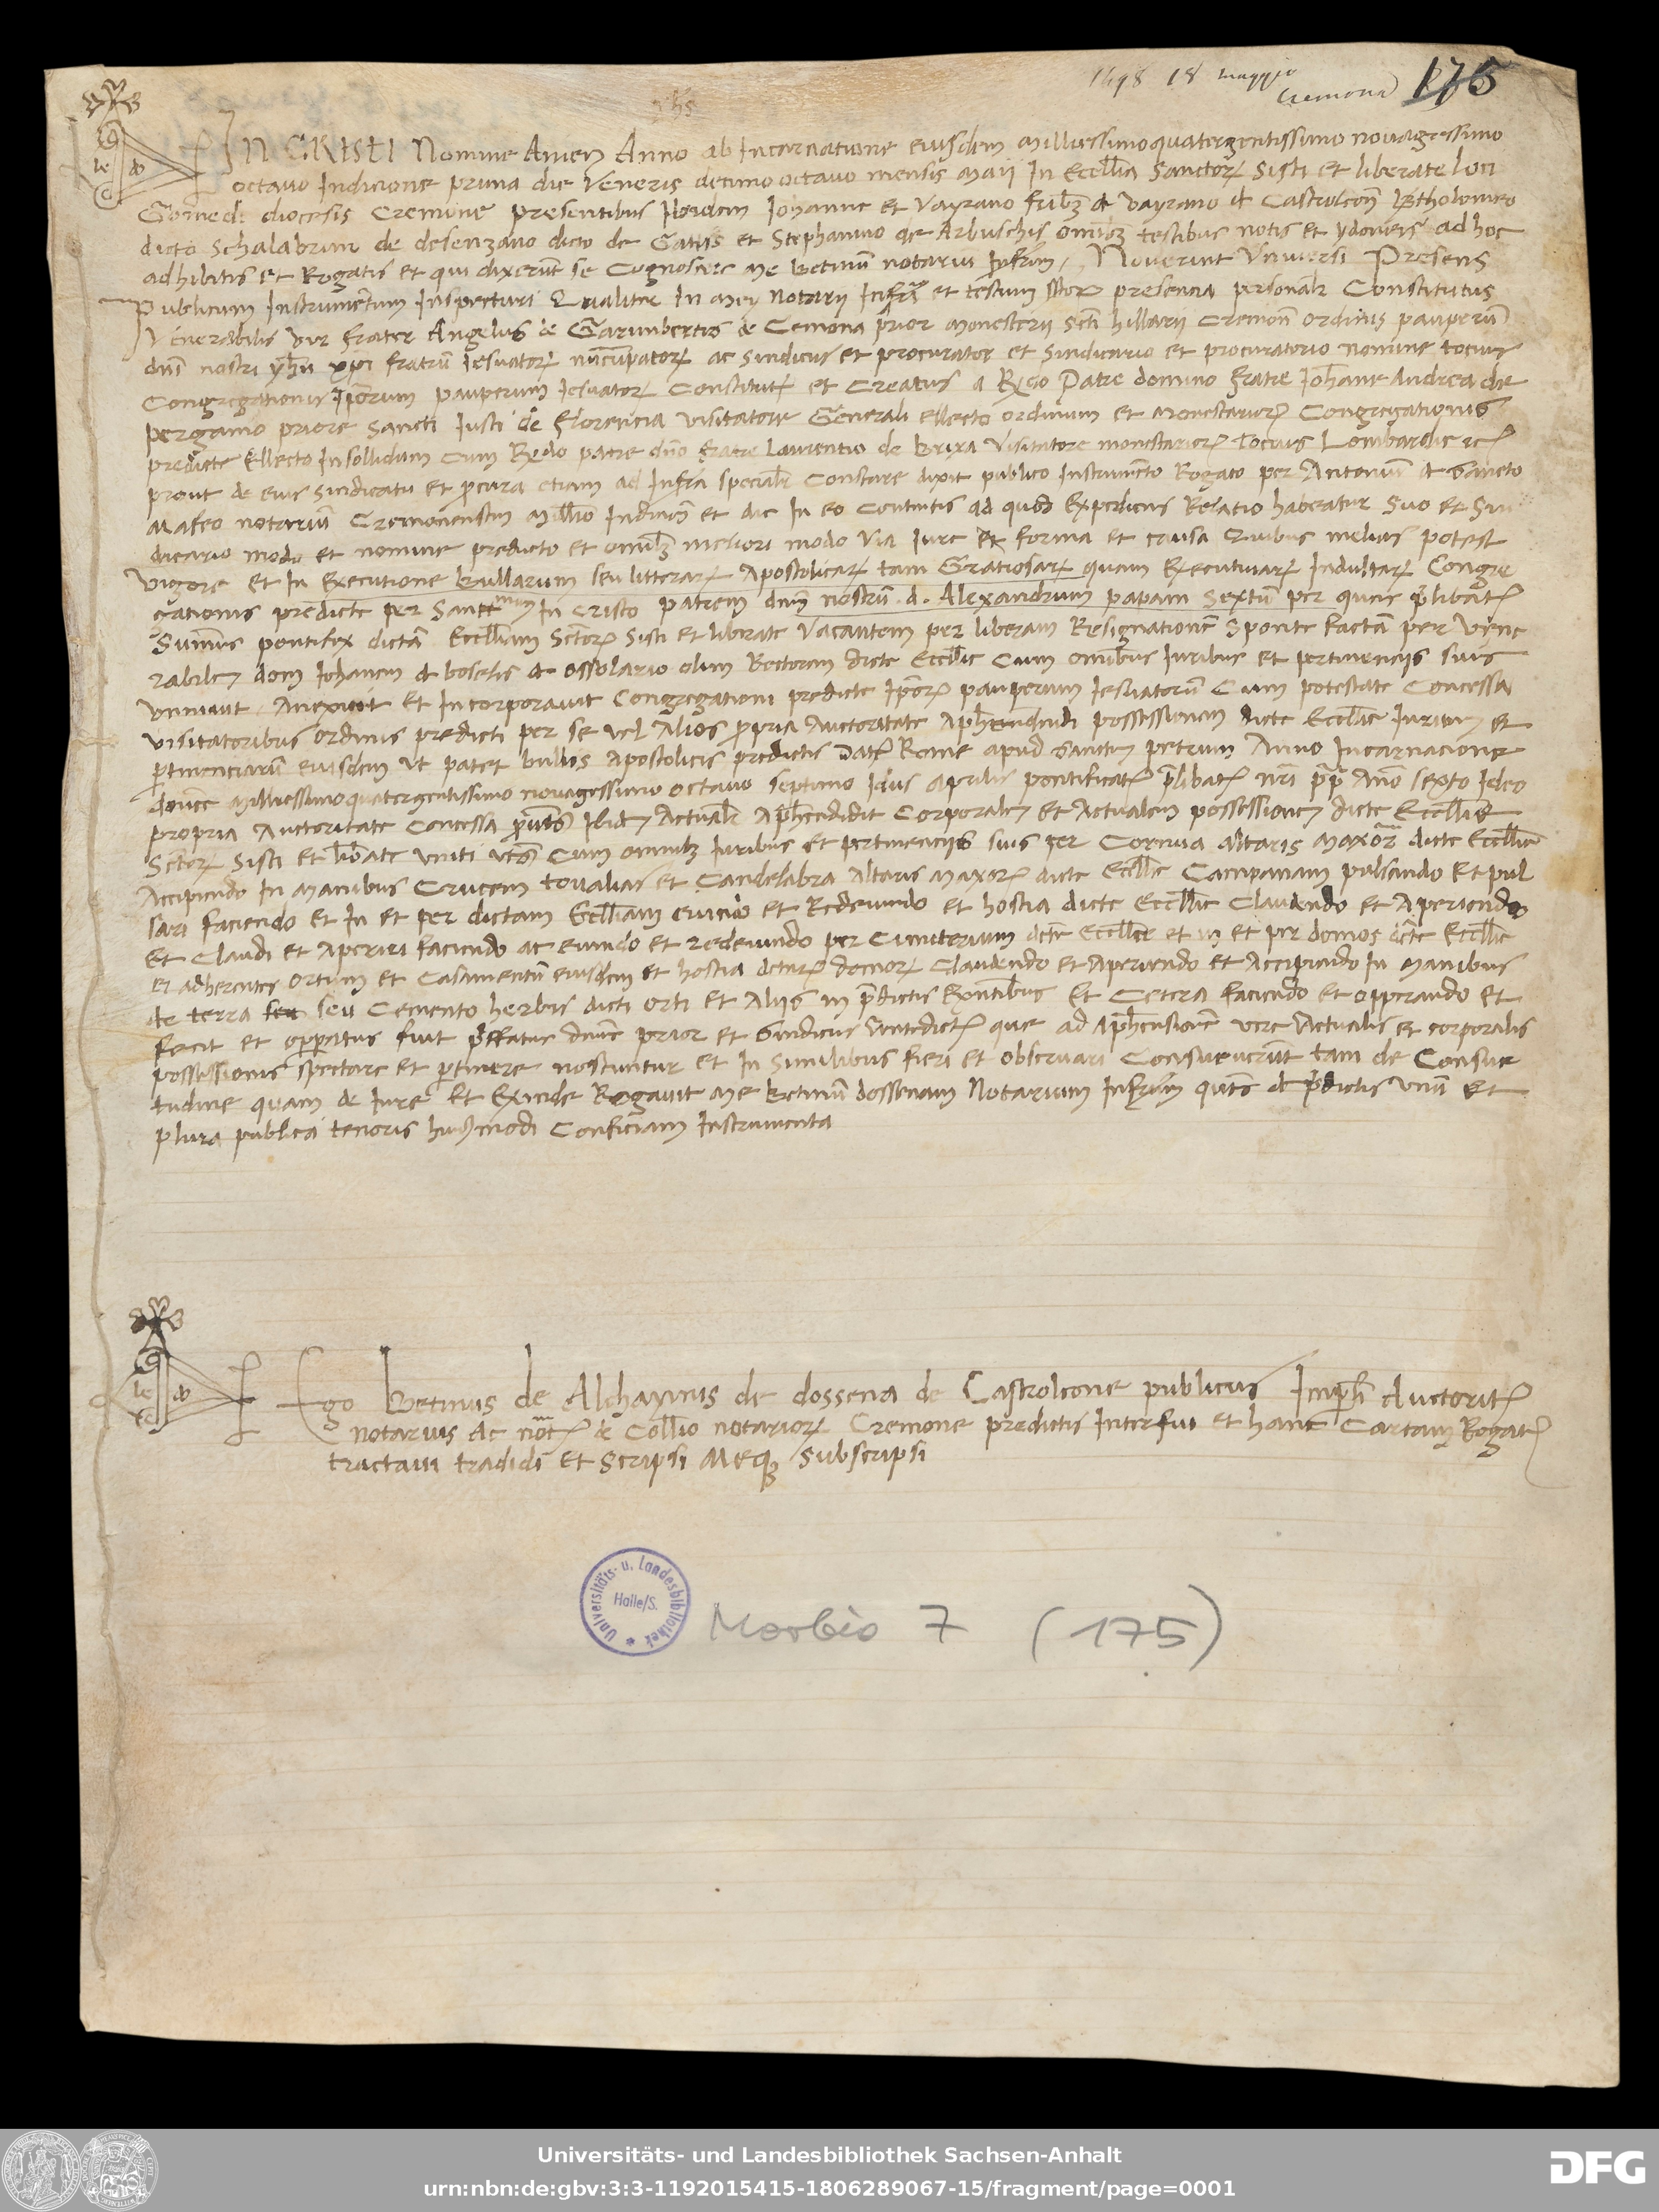 1498 18 maggio
Cremona
175
yhs
IN CRISTI Nomine Amen Anno ab Incarnatione eiusdem Millessimoquatergentissimo novagessimo
octavo Indicione prima die Veneris decimo octavo mensis Maij In Eccll̄ia Sanctorꝝ Sisti et liberate loci
diocesis Cremone presentibus Ibidem Iohanne et Vayrano fribꝫ de Vayrano de Castroleon̄ Bertholomeo
dicto Schalabrino de desenzano dicto de Gattis et Stephanino de Arbuschis omībꝫ testibus notis et ydoneis ad hoc
adhibitis et Rogatis et qui dixerūt se Cognoscere Me betinū notariū Infrm̄. Noverint Universi Presens
Publicum Instrumētum Inspecturi Qualiter In Mei Notarij Infrī et testium presencia personalr̄ Constitutus
Venerabilis vir frater Angelus de Garimbertis de Cremona prior Monesterij Scti hillarij Cremon̄ ordinis pauperū
dnī nostri yh̄u xpi fratrū Iesuatorꝝ nūcupatorꝝ ac sindicus et procurator et sindicario et procuratorio nomine tocius
Congregationis Ipōrum pauperum Iesuatorꝝ Constitutꝝ et Creatus a Rḙdo Patre domino fratre Ioh̄ane Andrea de
pergamo priore Sancti Iusti de florencia visitatore Generali Ellecto ordinum et Monestariorꝝ Congregationis
predicte Ellecto Insollidum Cum Rḙdo patre dn̄o fratre Laurentio de brixa visitatore monestariorꝝ tocius Lombardie ꝛc
prout de eius sindicatu et ꝓcura etiam ad Infrā specialr̄ Constare dixit publico Instrumēto Rogato per Antoniū de Sancto
Mafeo notariū Cremonensem Mill̄io Indiciōe et die In eo Contentis ad quod Expediens Relatio habeatur Suo et Sin
dicario modo et nomine predicto et omibꝫ meliori modo via Iure et forma et causa Quibus melius potest
vigore et In Executione bullarum seu litterarꝝ Apostolicarꝝ tam Gratiosarꝝ quam Executivarꝝ Indultarꝝ Congre
gationis predicte per Sanctmum In Cristo patrem dnm̄ nostrū .d. Alexandrum papam Sextū per quas p̄libatꝝ
Sumus pontifex dictā Eccll̄iam Sctorꝝ Sisti et liberate Vacantem per liberam Resignationē Sponte factā per Vene
rabilem dom Iohanem de bosetis de ossolario olim Rectorem dicte Eccll̄ie Cum omibus Iuribus et pertinencijs suis
Univit Anexuit et Incorporavit Congregationi predicte Ipōrꝝ pauperum Iesuatorū Cum potestate Concessa
visitatoribus ordinis predicti per se vel Alios propria Auctoritate Aph̄endendi possessionem dicte Eccll̄ie Iurium et
pertinenciarū eiusdem ut patet bullis Apostolicis predictis Datꝝ Rome apud Sanctum petrum Anno Incarnacione
donīce Millessimoquatergentissimo novagessimo octavo septimo Idus aprilis pontificatꝝ p̄libatꝝ nrī pp̄ Anō sexto Ideo
propria Auctoritate Concessa p̄ut s̄ Ibidem Actualr̄ Aph̄endidit Corporalem et Actualem possessionem dicte Eccll̄ie
Sctorꝝ Sisti et lib̄ate uniti uts̄ Cum omnibꝫ Iuribus et pertinencijs suis per Cornua altaris Maxorꝝ dicte Eccll̄ie
Accipiendo In Manibus Crucem tovalias et Candelabra altaris Maxorꝝ dicte Eccll̄ie Campanam pulsando et pul
sari faciendo et In et per dictam Eccll̄iam eundo et Redeundo et hostia dicte Eccll̄ie Claudendo et Aperiendo
Et Claudi et Aperiri faciendo ac eundo et redeundo per Cimiterium dcte Eccll̄ie et in et per domos dcte Eccll̄ie
et adherentes ortum et Casamentū eiusdem et hostia dctarꝝ domorꝝ Claudendo et Aperiendo et Accipiendo In Manibus
de terra seu seu Cemento herbis dicti orti et Alijs in p̄dictis Exn̄tibus Et Cetera faciendo et opperando Et
fecit et opperatus fuit p̄ffatus prior et Sindicus Antedictꝝ que ad Aph̄ensionē vere Actualis et corporalis
possessionis spectare et ꝑtinere noscuntur et In Similibus fieri et observari Consueverūt tam de Consue
tudine quam de Iure Et Exinde Rogavit Me betinū dossenam Notarium Infrm̄ de p̄dictis Unū Et
plura publica tenoris huiusmodi Conficiam Instrumenta
Ego betinus de Alchaynis de dossena de Castroleone publicus Imp̄li Auctoritꝝ
notarius Ac notꝝ de Coll̄io notariorꝝ Cremone predictis Interfui et hanc Cartam Rogatꝝ
tractavi tradidi et Scripsi Meqꝫ subscripsi
Universitäts- u. Landesbibliothek
Halle/S.
Morbio 7 (175)
Universitäts- und Landesbibliothek Sachsen-Anhalt
urn:nbn:de:gbv:3:3-1192015415-1806289067-15/fragment/page=0001
DFG